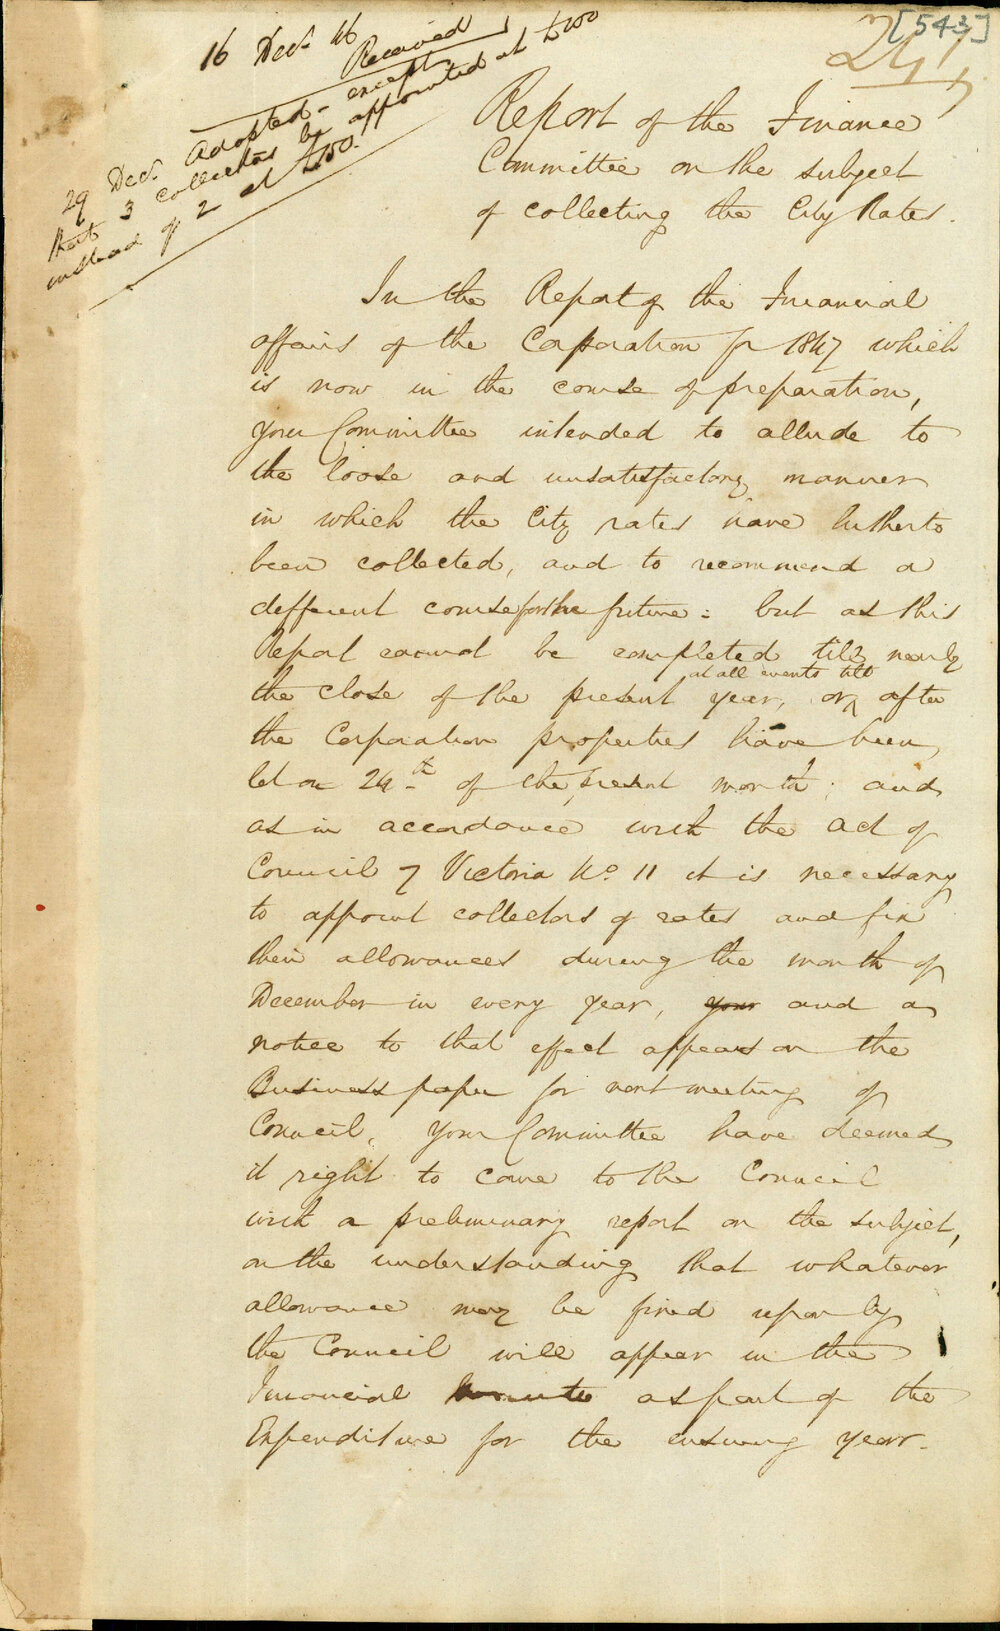 [543]
24/
16 Decr 46
Received
29 Decr Adopted - except
that 3 collectors be appointed at £100
instead of 2 at £150.
Report of the Finance
Committee on the subject
of collecting the City Rates.
In the Report of the Financial
affairs of the Corporation for 1847 which
is now in the course of preparation,
your Committee intended to allude to
the loose and unsatisfactory manner
in which the City rates have hitherto
been collected, and to recommend a
different course for the future: but as this
Report cannot be completed till nearly
at all events till
the close of the present year, or after
the Corporation properties have been
let on 24th of the present month; and
as in accordance with the Act of
Council 7 Victoria No 11 it is necessary
to appoint collectors of rates and fix
their allowances during the month of
December in every year, your and a
notice to that effect appears on the
Business paper for next meeting of
Council, your Committee have deemed
it right to come to the Council
with a preliminary report on the subject,
on the understanding that whatever
allowance may be fixed upon by
the Council will appear in the
Financial minute as part of the
Expenditure for the ensuing year.